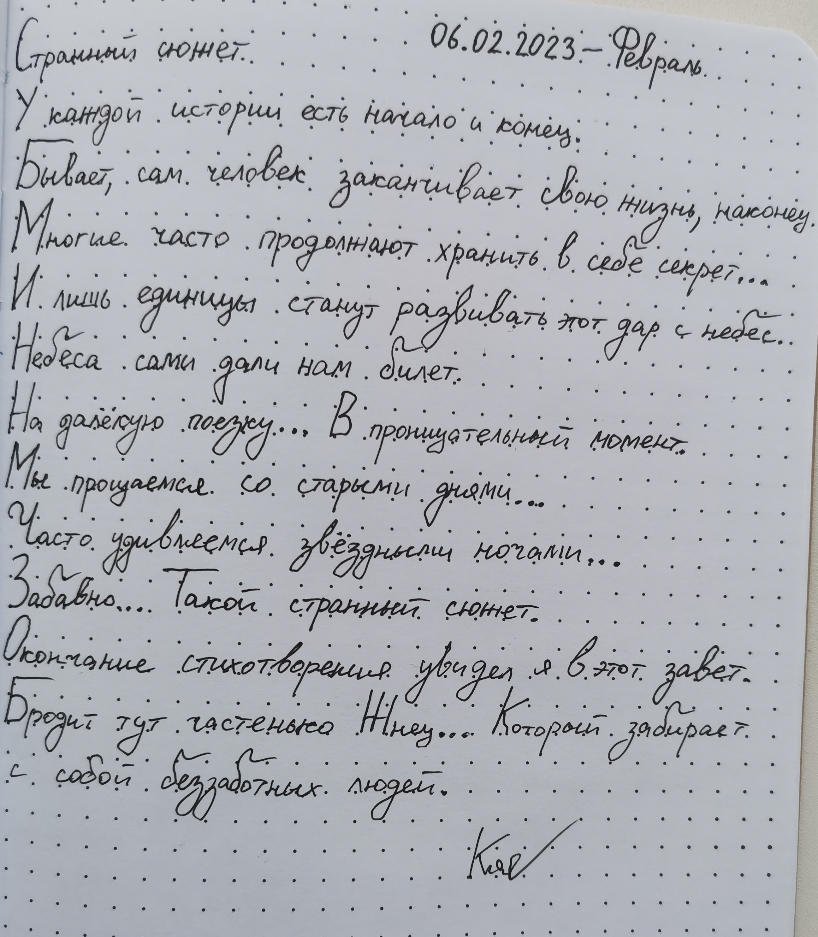 Странный сюжет. 06.02.2023 – Февраль.
У каждой истории есть начало и конец.
Бывает, сам человек заканчивает свою жизнь, наконец.
Многие часто продолжают хранить в себе секрет...
И лишь единицы станут развивать этот дар с небес..
Небеса сами дали нам билет.
На далёкую поезку... В проницательный момент.
Мы прощаемся со старыми днями...
Часто удивляемся звёздными ночами...
Забавно... Такой странный сюжет.
Окончание стихотворения увидел я в этот завет.
Бродит тут частенько Жнец... Который забирает
с собой беззаботных людей.